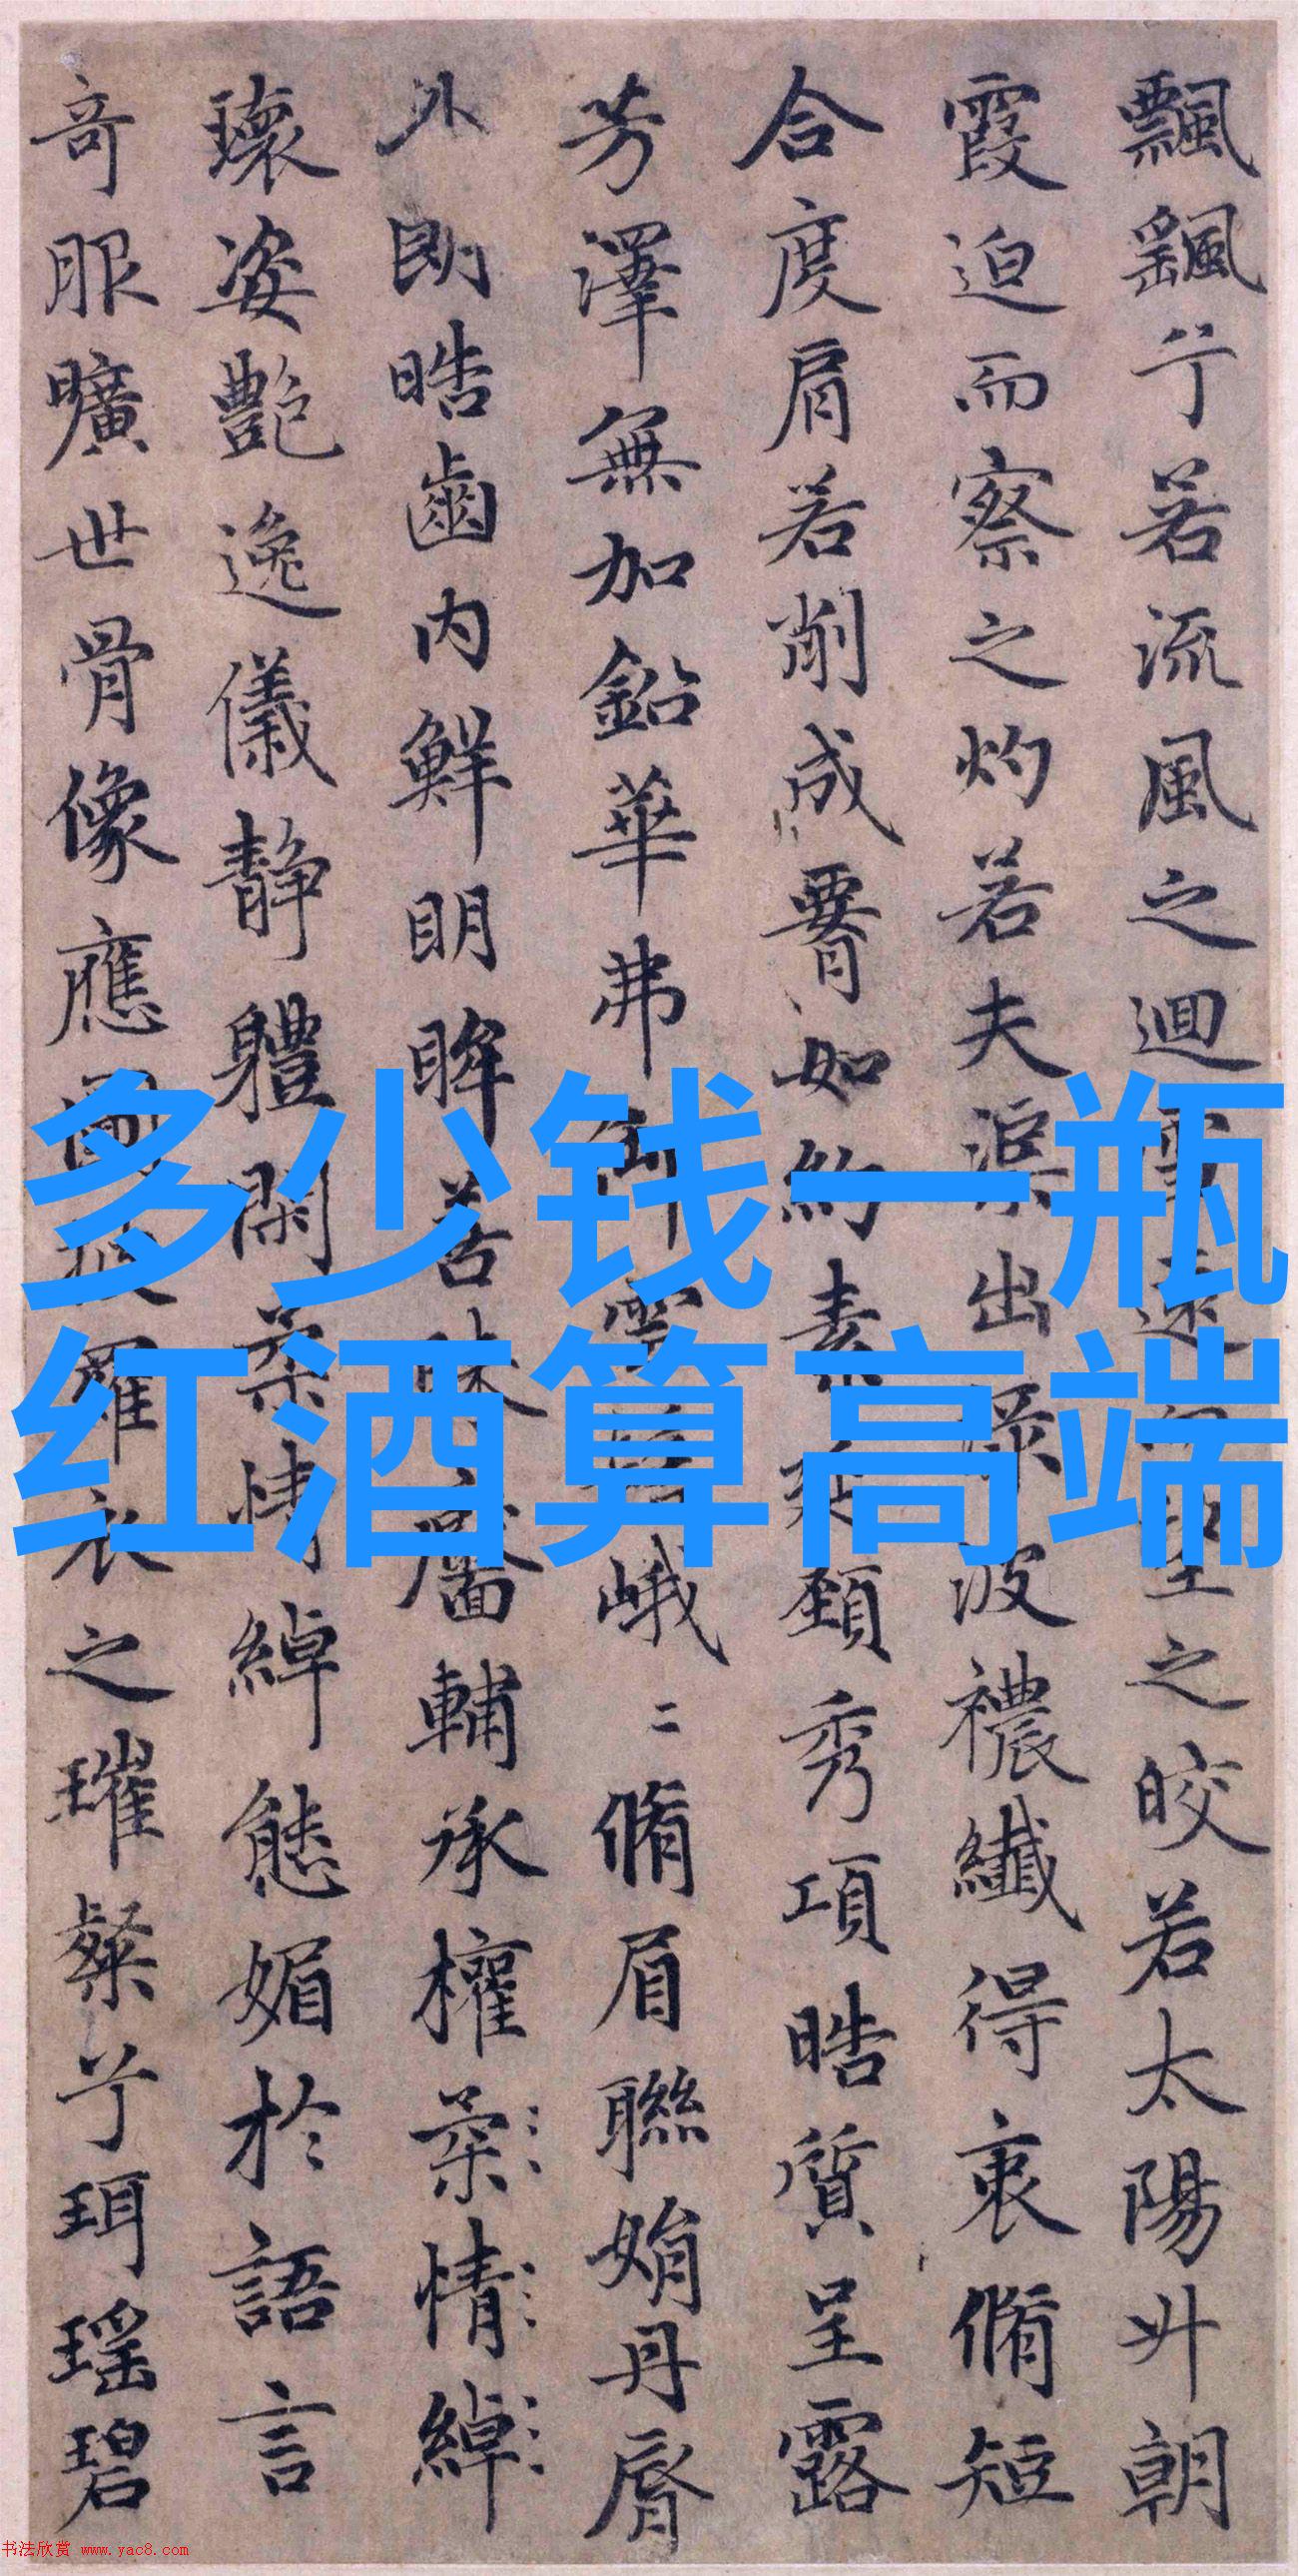 飄飖兮若流風之迴雪遠而望之皎若太陽升朝
霞迫而察之灼若夫渠出渌波禯纖得衷脩短
合度肩若削成署如約素延頸秀項皓質呈露
芳澤無加鉛華弗御雲髻峨二脩眉聯娟丹脣
外朗皓齒內鮮明眸善睞靨輔承權柔情綽
瓌姿艷逸儀靜軆閑柔情綽態媚於語言
奇服曠世骨像應圖披羅衣之璀粲兮珥瑶碧
多少钱一瓶
红酒算高端
书法欣赏 www.yac8.com